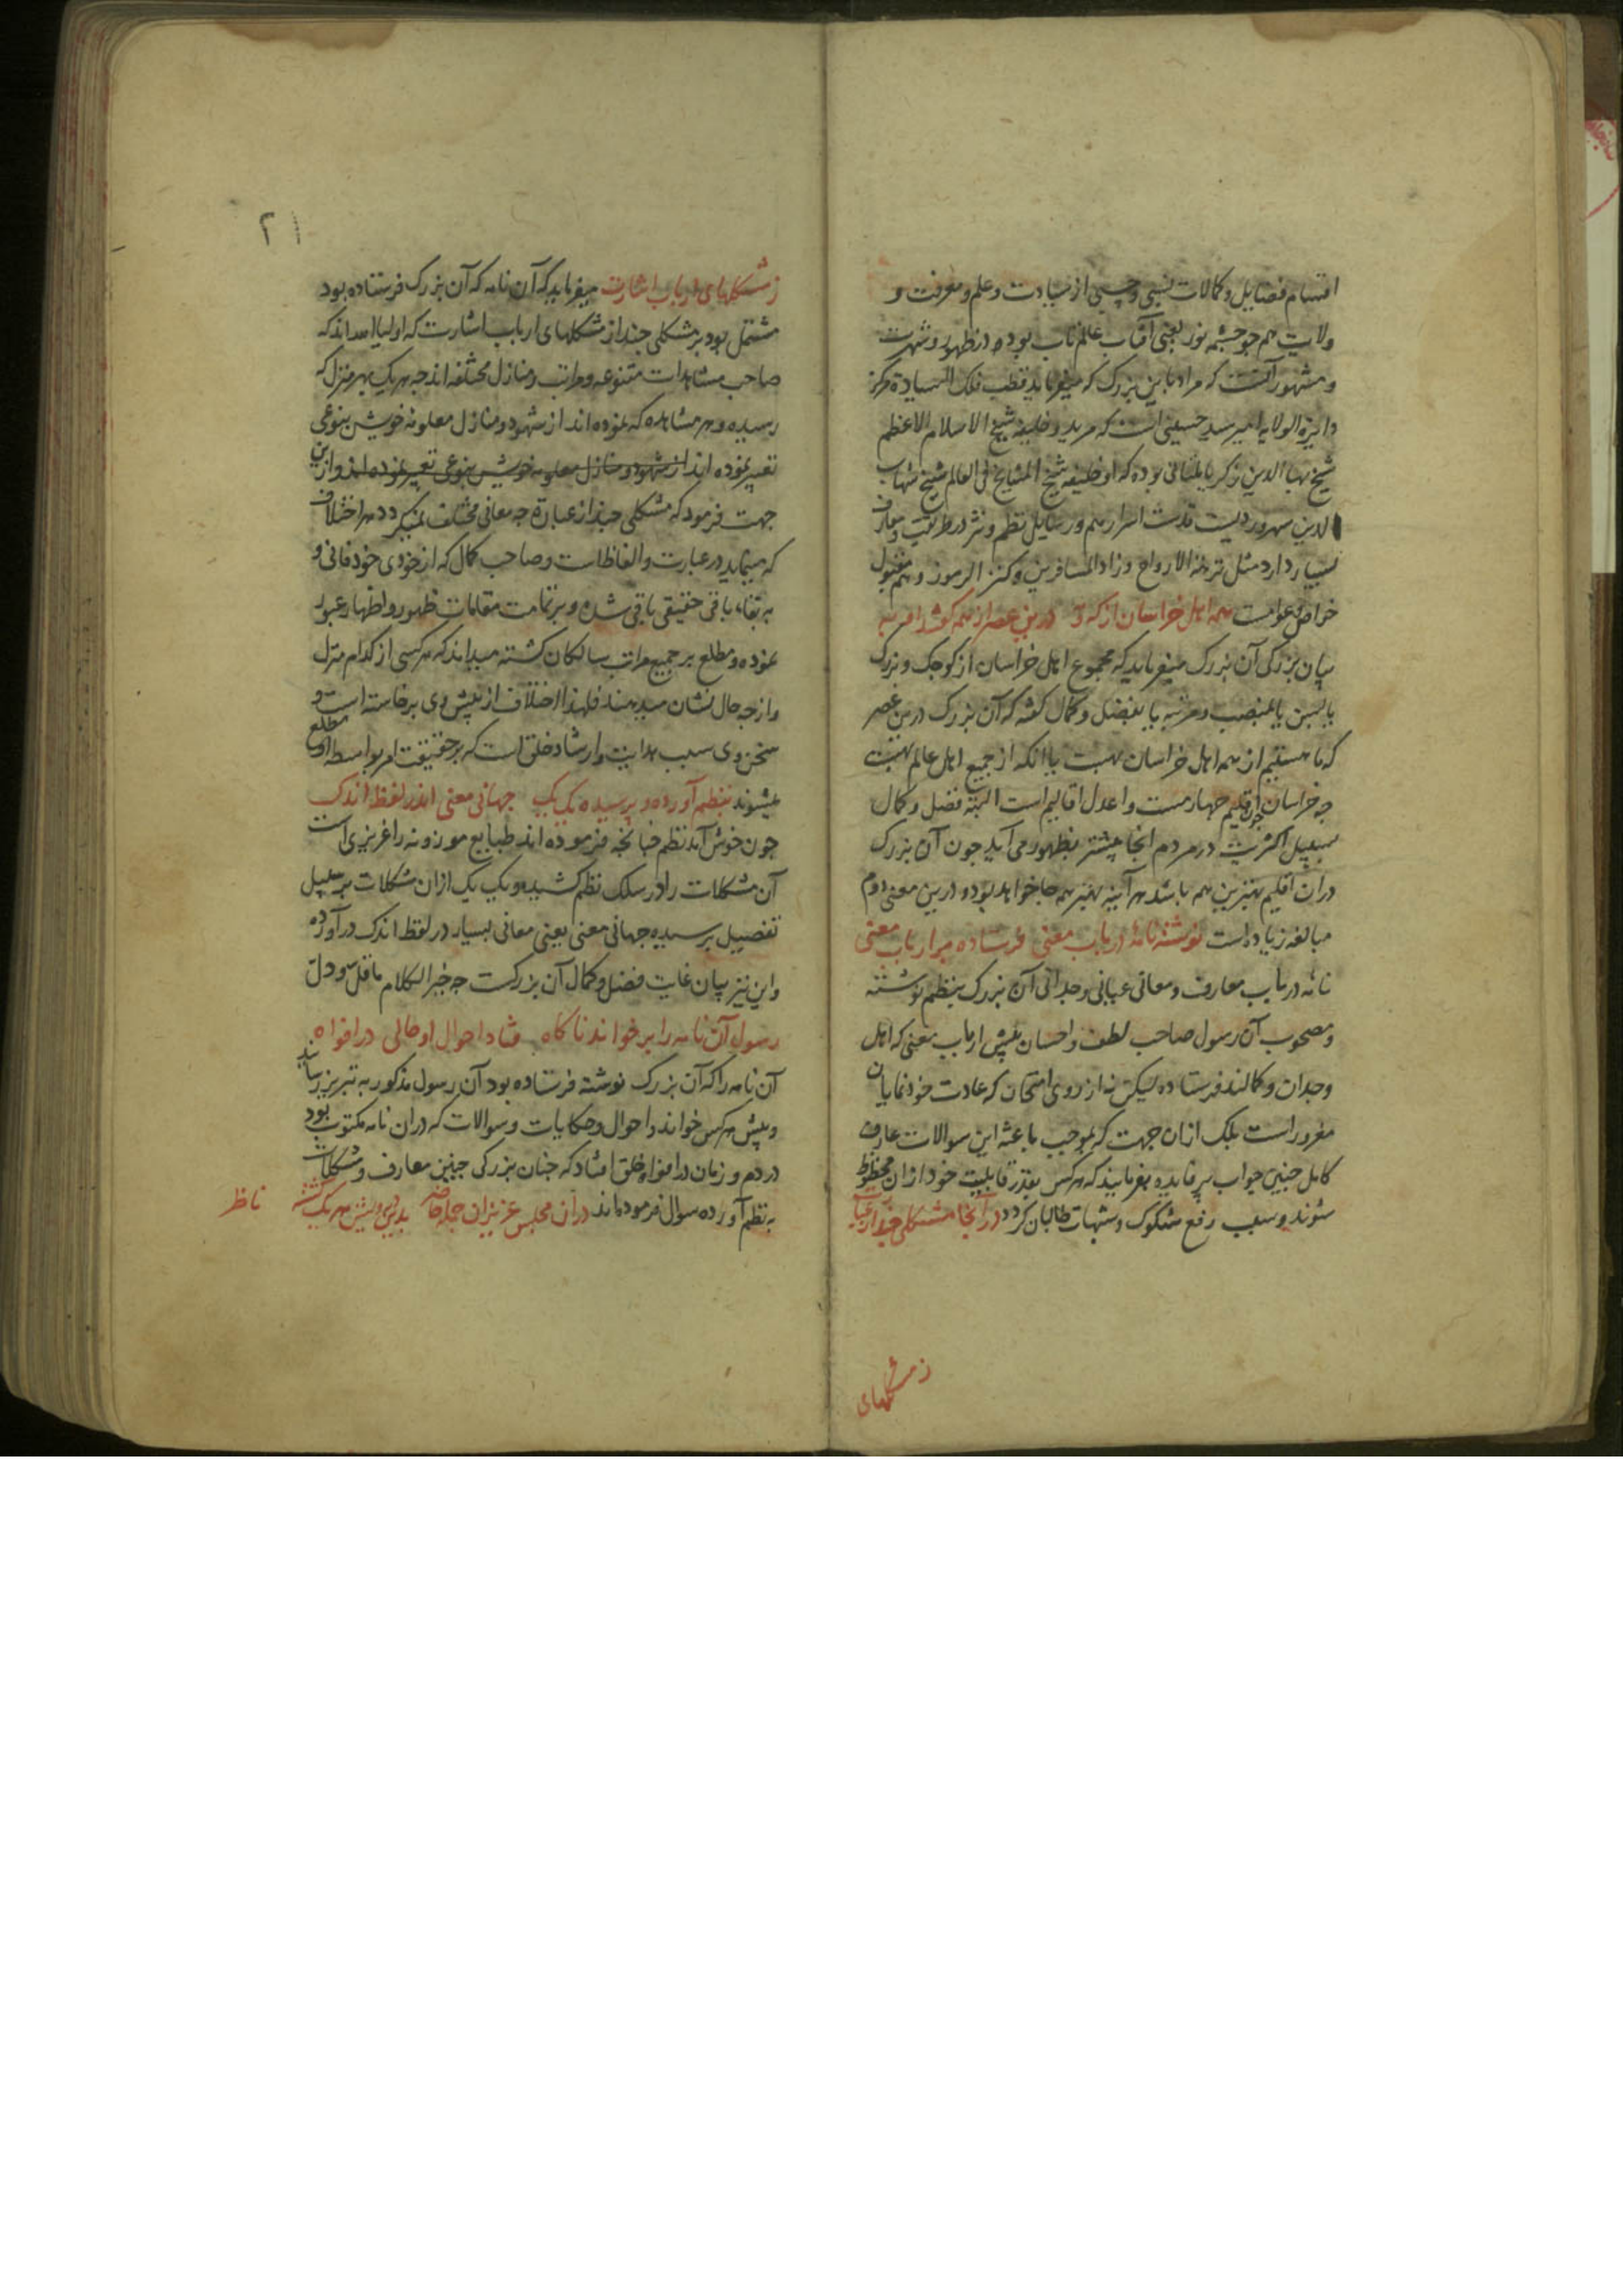 اقسام فضایل و کمالات نسبی و حسبی از سیادت و علم و معرفت و
ولایت هم چو چشمه نور یعنی آفتاب عالم تاب بوده در ظهور و شهرت
و مشهور آنست که مراد باین بزرک که میفرماید قطب فلک السیادة مرکز
دایرة الولایه امیر سید حسینی است که مرید و خلیفه شیخ الاسلام الاعظم
شیخ بهاالدین زکریا ملتانی بوده که او خلیفه شیخ المشایخ فی العالم شیخ شهاب
الدین سهروردیست قدست اسرارهم و رسایل نظم و نثر در طریقت و معارف
بسیار دارد مثل نزهة الارواح و زاد المسافرین و کنز الرموز و همه مقبول
خواص و عوامست همه اهل خراسان از که و مه درین عصر از همه کفتند او به
بیان بزرکی آن بزرک میفرماید که مجموع اهل خراسان از کوچک و بزرک
یا بسن یا بمنصب و مرتبه یا بفضل و کمال کفته که آن بزرک درین عصر
که ما هستیم از همه اهل خراسان بهست یا انکه از جمیع اهل عالم بهست
چه خراسان چون اقلیم چهارمست و اعدل اقالیم است البته فضل و کمال
بسبیل اکثریت در مردم انجا بیشتر بظهور می آید چون آن بزرک
در ان اقلیم بهترین همه باشد هر آینه بهتر همه جا خواهد بود و درین معنی دوم
مبالغه زیاده است نوشته نامهٔ در باب معنی فرستاده بر ارباب معنی
نامه در باب معارف و معانی عیانی وجدانی آن بزرک بنظم نوشته
و مصحوب آن رسول صاحب لطف و احسان پیش ارباب معنی که اهل
وجدان و کمالند فرستاده لیکن نه از روی امتحان که عادت خودنمایان
مغرور است بلک ازان جهت که بموجب باعثه این سوالات عارف
کامل چنین جواب پر فایده بفرمایند که هر کس بقدر قابلیت خود ازان محظوظ
شوند و سبب رفع شکوک و شبهات طالبان کردد در آنجا مشکلی چند از عبارت
ز مشکلهای
۲۱
ز مشکلهای ارباب اشارت میفرماید که آن نامه که آن بزرک فرستاده بود
مشتمل بود بر مشکلی چند از مشکلهای ارباب اشارت که اولیاء الله اند که
صاحب مشاهدات متنوعه و مراتب و منازل مختلفه اند چه هر یک بهر منزل که
رسیده و هر مشاهده که نموده اند از شهود و منازل معلومه خویش بنوعی
تعبیر نموده اند از شهود و منازل معلومه خویش بنوعی تعبیر نموده اند و ازین
جهت فرمود که مشکلی چند از عبارة چه معانی مختلف نمیکردد هر اختلاف
که مینماید در عبارت و الفاظ است و صاحب کمال که از خودی خود فانی و
به بقاء باقی حقیقی باقی شده و بر تمامت مقامات ظهور و اظهار عبور
نموده و مطلع بر جمیع مراتب سالکان کشته میداند که هر کسی از کدام منزل
و از چه حال نشان میدهند فلهذا اختلاف از پیش وی برخاسته است و
سخن وی سبب هدایت و ارشاد خلق است که بر حقیقت امر بواسطه او مطلع
میشوند بنظم آورده و پرسیده یک یک جهانی معنی اندر لفظ اندک
چون خوش آیند نظم چنانچه فرموده اند طبایع موزونه را غریزی است
آن مشکلات را در سلک نظم کشیده و یک یک ازان مشکلات بر سبیل
تفصیل پرسیده جهانی معنی یعنی معانی بسیار در لفظ اندک در آورده
و این نیز بیان غایت فضل و کمال آن بزرکست چه خیر الکلام ما قلّ و دلّ
رسول آن نامه را بر خواند ناکاه فتاد احوال او حالی در افواه
آن نامه را که آن بزرک نوشته فرستاده بود آن رسول مذکور به تبریز رسانید
و پیش هر کس خواند و احوال و حکایات و سوالات که دران نامه مکتوب بود
در دم و زمان در افواه خلق افتاد که چنان بزرکی چنین معارف و مشکلات
به نظم آورده سوال فرموده اند دران مجلس عزیزان جمله حاضر بدین درویش هر یک کشته
ناظر